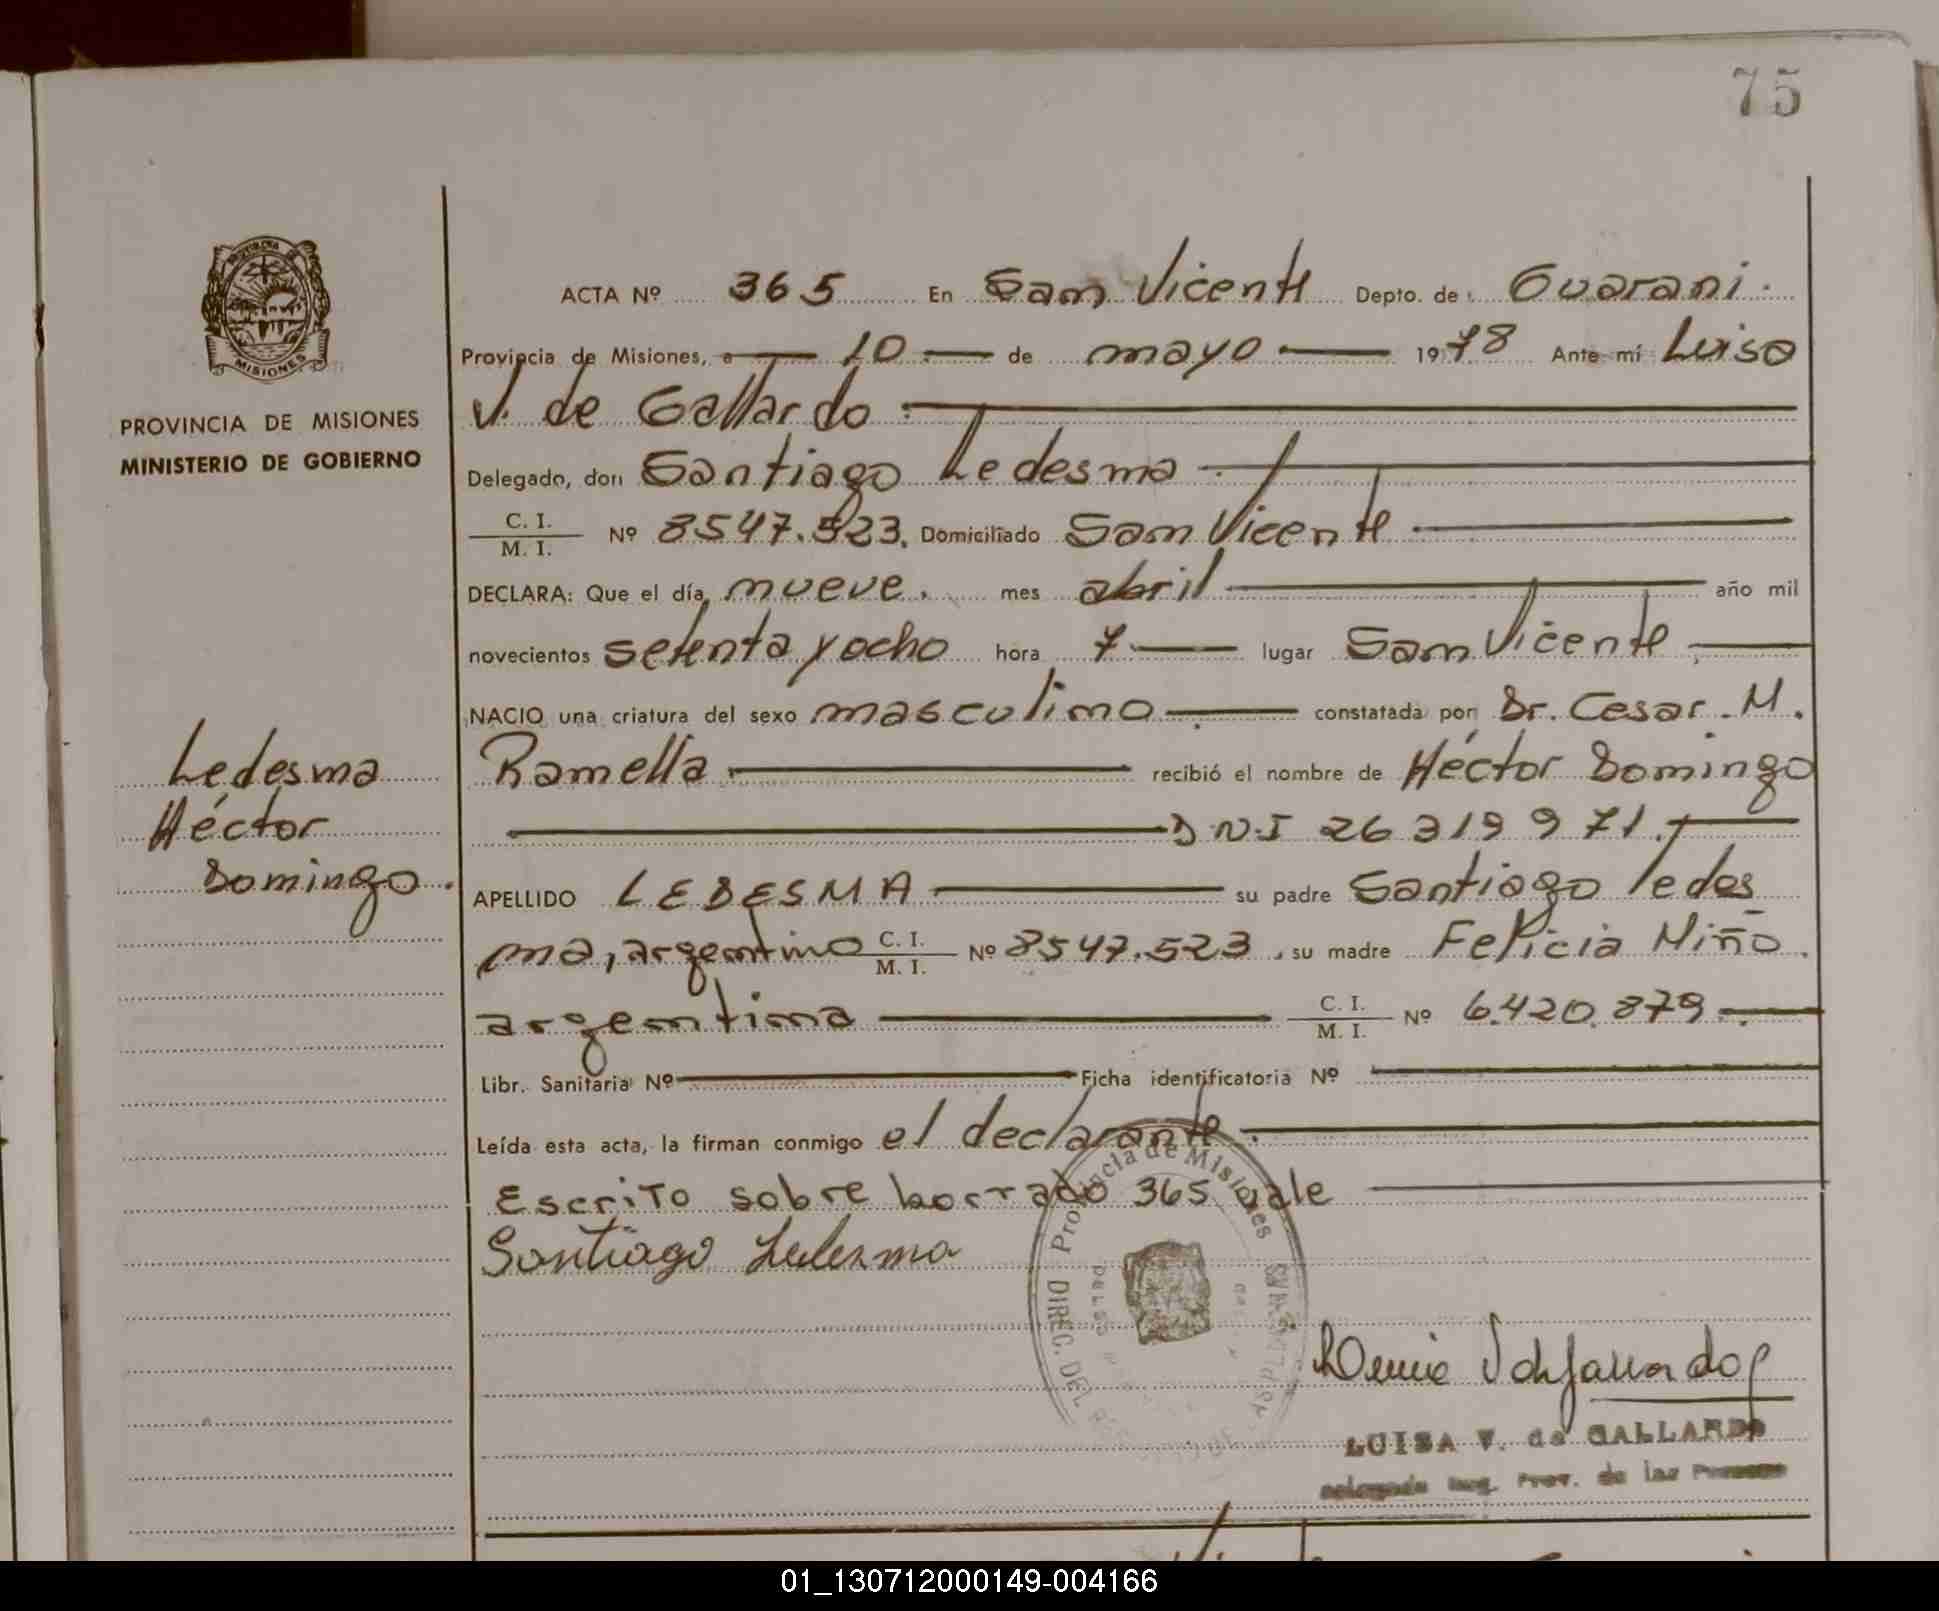 75
ACTA Nº 365 En San Vicente Depto. de Guarani.
Provincia de Misiones, a 10 de mayo 1978 Ante mí Luisa
V. de Gallardo
PROVINCIA DE MISIONES
MINISTERIO DE GOBIERNO
MISIONES
Delegado, don Santiago Ledesma
C. I.
M. I. Nº 8547.523. Domiciliado San Vicente
DECLARA: Que el día nueve. mes abril año mil
novecientos setenta y ocho hora 7 lugar San Vicente
NACIO una criatura del sexo masculino constatada por Dr. Cesar. M.
Ramella recibió el nombre de Héctor Domingo
D N.I 26 319 971.
Ledesma
Héctor
Domingo.
APELLIDO LEDESMA su padre Santiago ledes
ma, argentino C. I. M. I. Nº 8547.523, su madre Felicia Niño.
argentina C. I. M. I. Nº 6.420.879
Libr. Sanitaria Nº Ficha identificatoria Nº
Leída esta acta, la firman conmigo el declarante.
Escrito sobre borrado 365 vale
Santiago Ledezma
Provincia de Misiones
DIREC. DEL
LUISA V. de GALLARDO
Delegada Reg. Prov. de las Personas
01_130712000149-004166